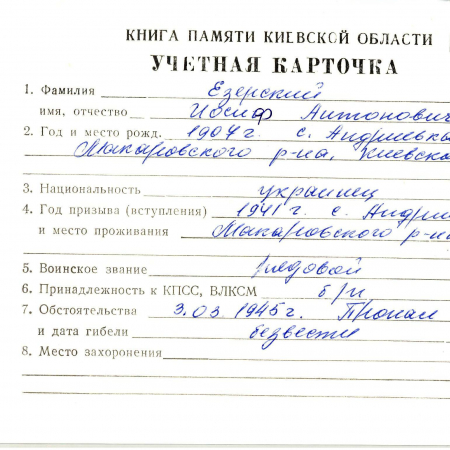 КНИГА ПАМЯТИ КИЕВСКОЙ ОБЛАСТИ
УЧЕТНАЯ КАРТОЧКА
1. Фамилия Езерский
имя, отчество Иосиф Антонович
2. Год и место рожд. 1904 г. с. Андриевка
Макаровского р-на, Киевско
3. Национальность украинец
4. Год призыва (вступления) 1941 г. с. Андри
и место проживания Макаровского р-н
5. Воинское звание рядовой
6. Принадлежность к КПСС, ВЛКСМ б/п
7. Обстоятельства 3.03 1945г. Пропал
и дата гибели безвести
8. Место захоронения